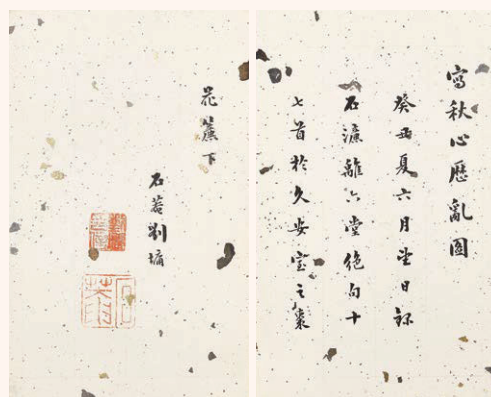 寫秋心歷亂圖
癸丑夏六月望日錄
石濂離六堂絕句十
七首於久安室之棗
花簾下
石菴劉墉
石菴